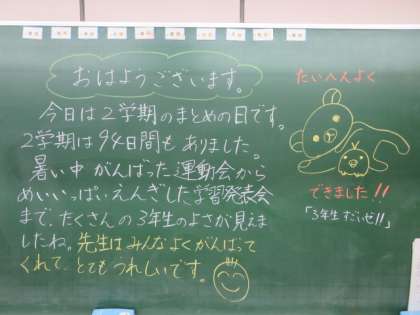 おはようございます。
今日は2学期のまとめの日です。
2学期は94日間もありました。
暑い中がんばった運動会から
めいいっぱいえんぎした学習発表会
まで、たくさんの3年生のよさが見え
ましたね。先生はみんなよくがんばって
くれて、とてもうれしいです。
たいへんよく
できました!!
「3年生すごいぜ!!」